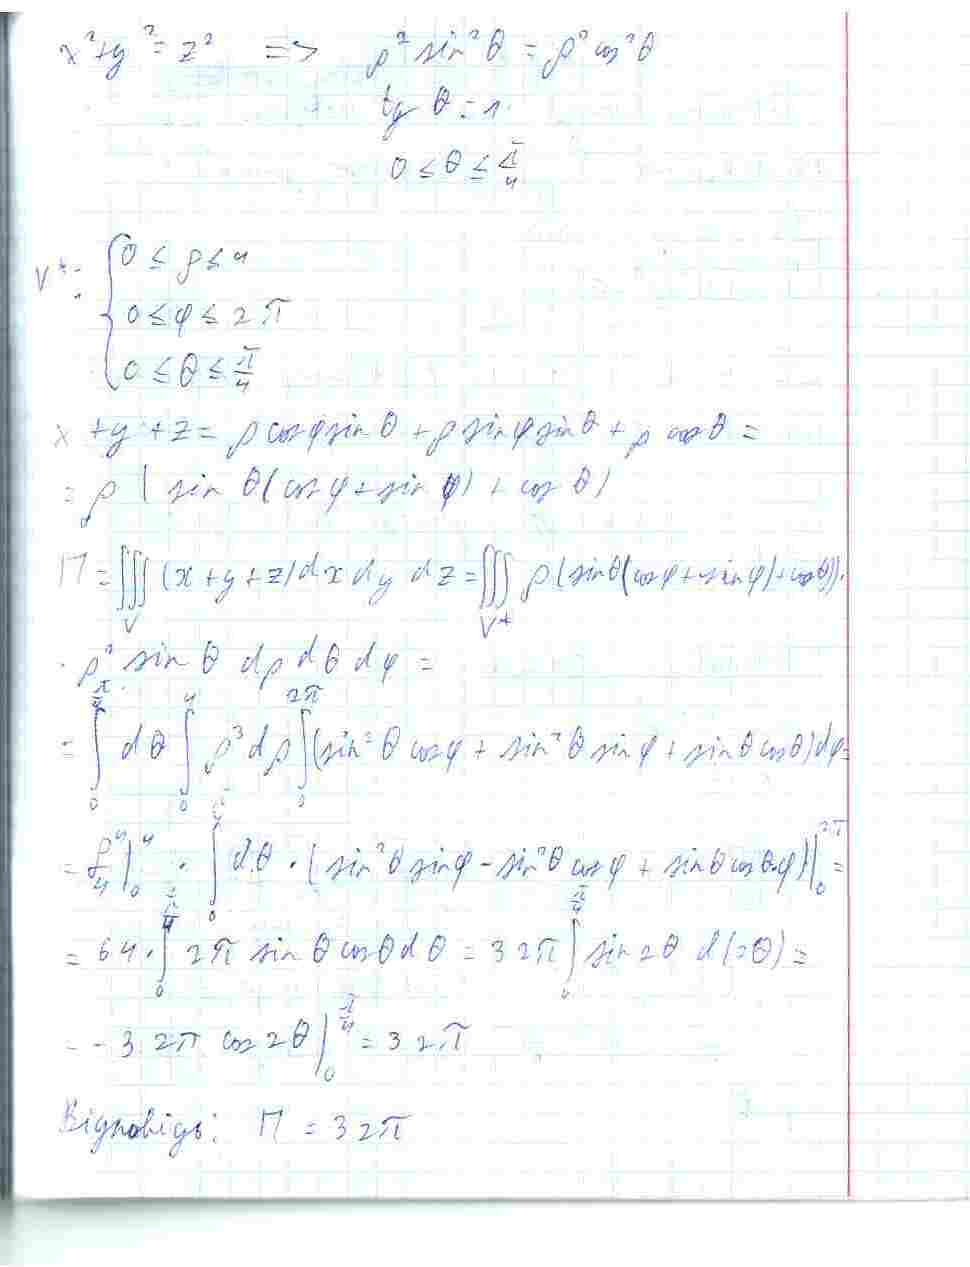 x² + y² = z² => ρ² sin² θ = ρ² cos² θ
tg θ = 1.
0 ≤ θ ≤ π/4
V*: { 0 ≤ ρ ≤ 4
0 ≤ φ ≤ 2π
0 ≤ θ ≤ π/4
x + y + z = ρ cos φ sin θ + ρ sin φ sin θ + ρ cos θ =
= ρ ( sin θ (cos φ + sin φ) + cos θ )
П = ∭_V (x + y + z) dx dy dz = ∭_V* ρ (sin θ (cos φ + sin φ) + cos θ)) ·
· ρ² sin θ dρ dθ dφ =
= ∫_0^{π/4} dθ ∫_0^4 ρ³ dρ ∫_0^{2π} (sin² θ cos φ + sin² θ sin φ + sin θ cos θ) dφ =
= ρ⁴/4 |_0^4 · ∫_0^{π/4} dθ · ( sin² θ sin φ - sin² θ cos φ + sin θ cos θ · φ) |_0^{2π} =
= 64 · ∫_0^{π/4} 2π sin θ cos θ dθ = 32π ∫_0^{π/4} sin 2θ d(2θ) =
= - 32π cos 2θ |_0^{π/4} = 32π
Відповідь: П = 32π